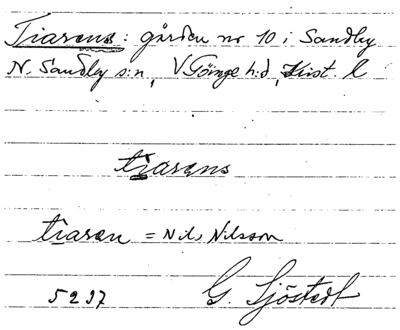 Tiarens: gården nr 10 i Sandby
N. Sandby s:n, V Göinge h:d, Krist. l
tiarens
tiaren = Nils Nilsson
5297 G. Sjöstedt